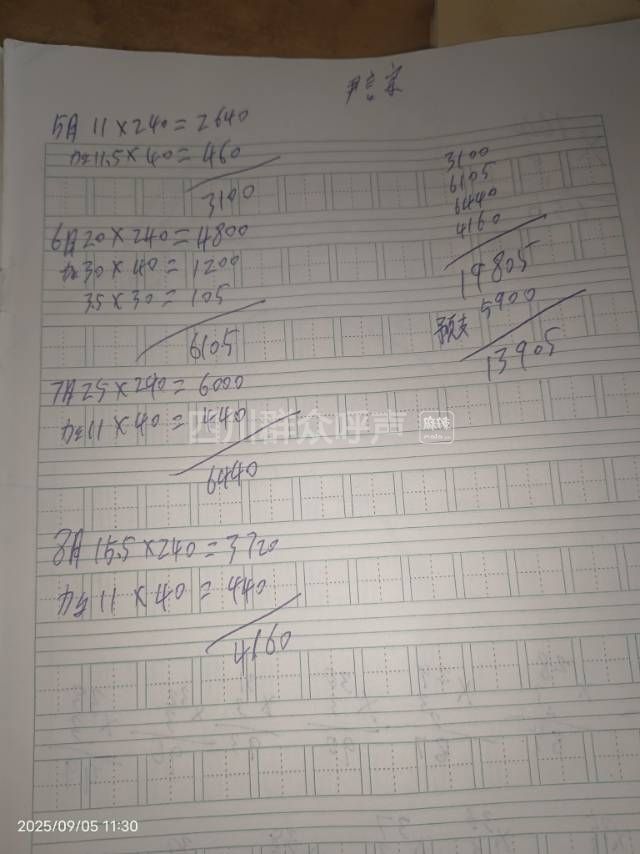 5月 11×240=2640
加11.5×40=460
3100
6月20×240=4800
加30×40=1200
35×30=105
6105
7月25×240=6000
加11×40=440
6440
8月15.5×240=3720
加11×40=440
4160
3100
6105
6440
4160
19805
预支 5900
13905
四川群众呼声
麻辣
mala.cn
2025/09/05 11:30